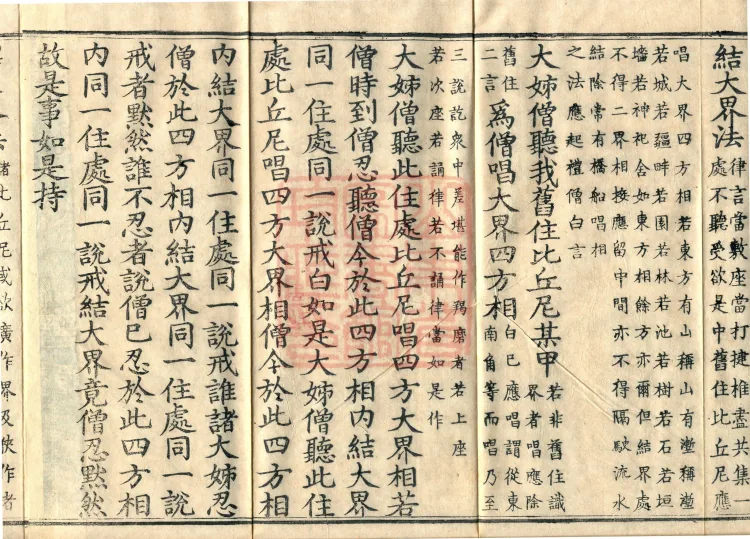 結大界法
律言當敷座當打揵椎盡共集一
處不聽受欲是中舊住比丘尼應
唱大界四方相若東方有山稱山有壍稱壍
若城若疆畔若園若林若池若樹若石若垣
墻若神祀舍如東方相餘方亦爾但結界處
不得二界相接應留中間亦不得隔駃流水
結除常有橋船唱相
之法應起禮僧白言
大姊僧聽我舊住比丘尼某甲
若非舊住識
界者唱應除
舊住
二言
爲僧唱大界四方相
白已應唱謂從東
南角等而唱乃至
三說訖衆中差堪能作羯磨者若上座
若次座若誦律若不誦律當如是作
大姊僧聽此住處比丘尼唱四方大界相若
僧時到僧忍聽僧今於此四方相內結大界
同一住處同一說戒白如是大姊僧聽此住
處比丘尼唱四方大界相僧今於此四方相
內結大界同一住處同一說戒誰諸大姊忍
僧於此四方相內結大界同一住處同一說
戒者默然誰不忍者說僧已忍於此四方相
內同一住處同一說戒結大界竟僧忍默然
故是事如是持
諸比丘尼或欲廣作界及狹作者